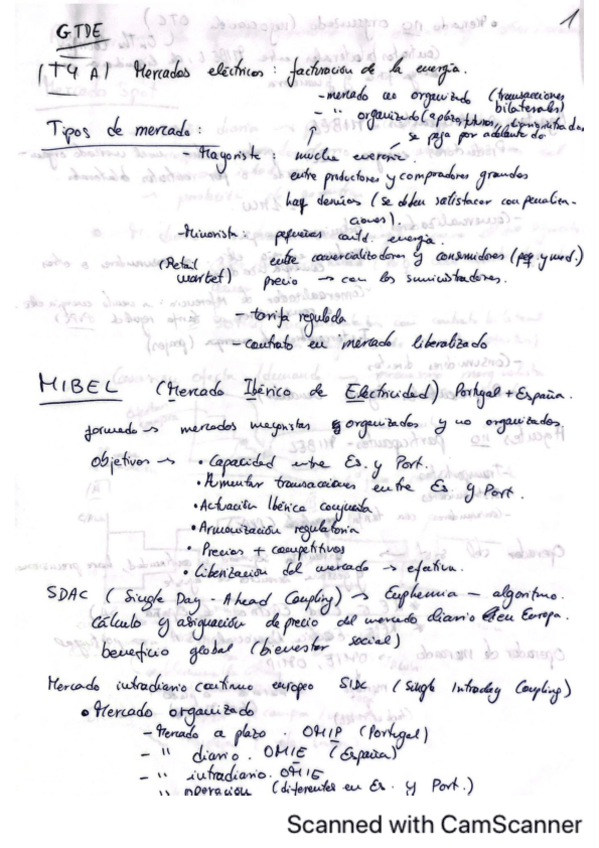 1
GTDE
(T4 A) Mercados eléctricos: facturación de la energía.
- mercado no organizado (transacciones bilaterales)
- " organizado (a plazo, futuros,
Tipos de mercado:
se paga por adelantado
- Mayorista: mucha energía
entre productores y compradores grandes
hay desvios (se deben satisfacer con penalizaciones).
- Minorista: pequeñas cantd. energía.
(Retail market)
entre comercializadores y consumidores (peq. y med.)
precio → con los suministradores.
- tarifa regulada
- contrato en mercado liberalizado
MIBEL (Mercado Ibérico de Electricidad) Portugal + España.
formado → mercados mayoristas organizados y no organizados
objetivos → • Capacidad entre Es. y Port.
• Aumentar transacciones entre Es y Port.
• Actuación Ibérica conjunta
• Armonización regulatoria
• Precios + competitivos
• Liberización del mercado → efectiva.
SDAC (Single Day-Ahead Coupling) → Euphemia - algoritmo.
cálculo y asignación de precio del mercado diario en Europa.
beneficio global (bienestar social)
Mercado intradiario continuo europeo SIDC (Single Intraday Coupling)
• Mercado organizado
- Mercado a plazo. OMIP (Portugal)
- " diario. OMIE (España)
- " intradiario. OMIE
" operación (diferentes en Es. y Port.)
Scanned with CamScanner